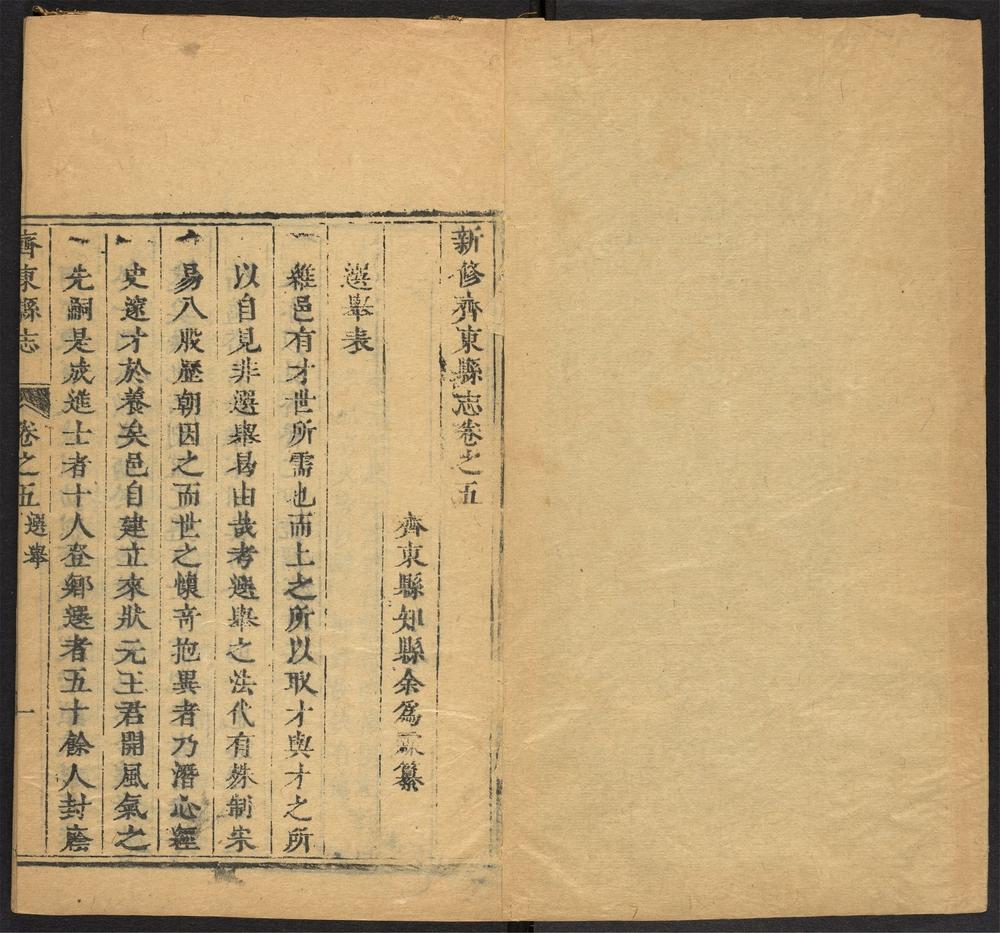 新修齊東縣志卷之五
齊東縣知縣余爲霖纂
選舉表
雜邑有才世所需也而上之所以取才與才之所
以自見非選舉曷由哉考選舉之法代有殊制宋
易八股歷朝因之而世之懷奇抱異者乃潛心經
史邃才於養矣邑自建立來狀元王君開風氣之
先嗣是成進士者十人登鄉選者五十餘人封廕
齊東縣志 卷之五 選舉 一